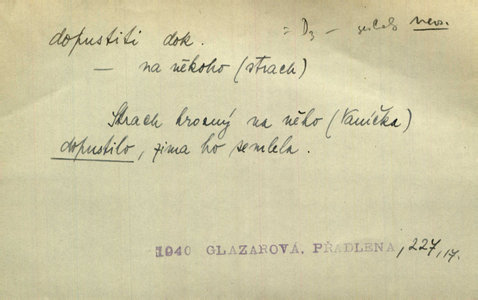 dopustiti dok. = D3 — neos.
— na někoho (strach)
Strach hrozný na něho (Vaníčka)
dopustilo, zima ho semlela.
1940 GLAZAROVÁ, PŘADLENA, 227,17.